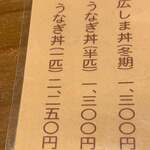 広しま丼(冬期)一、三〇〇円
うなぎ丼(半匹)一、三〇〇円
うなぎ丼(一匹)二、二五〇円